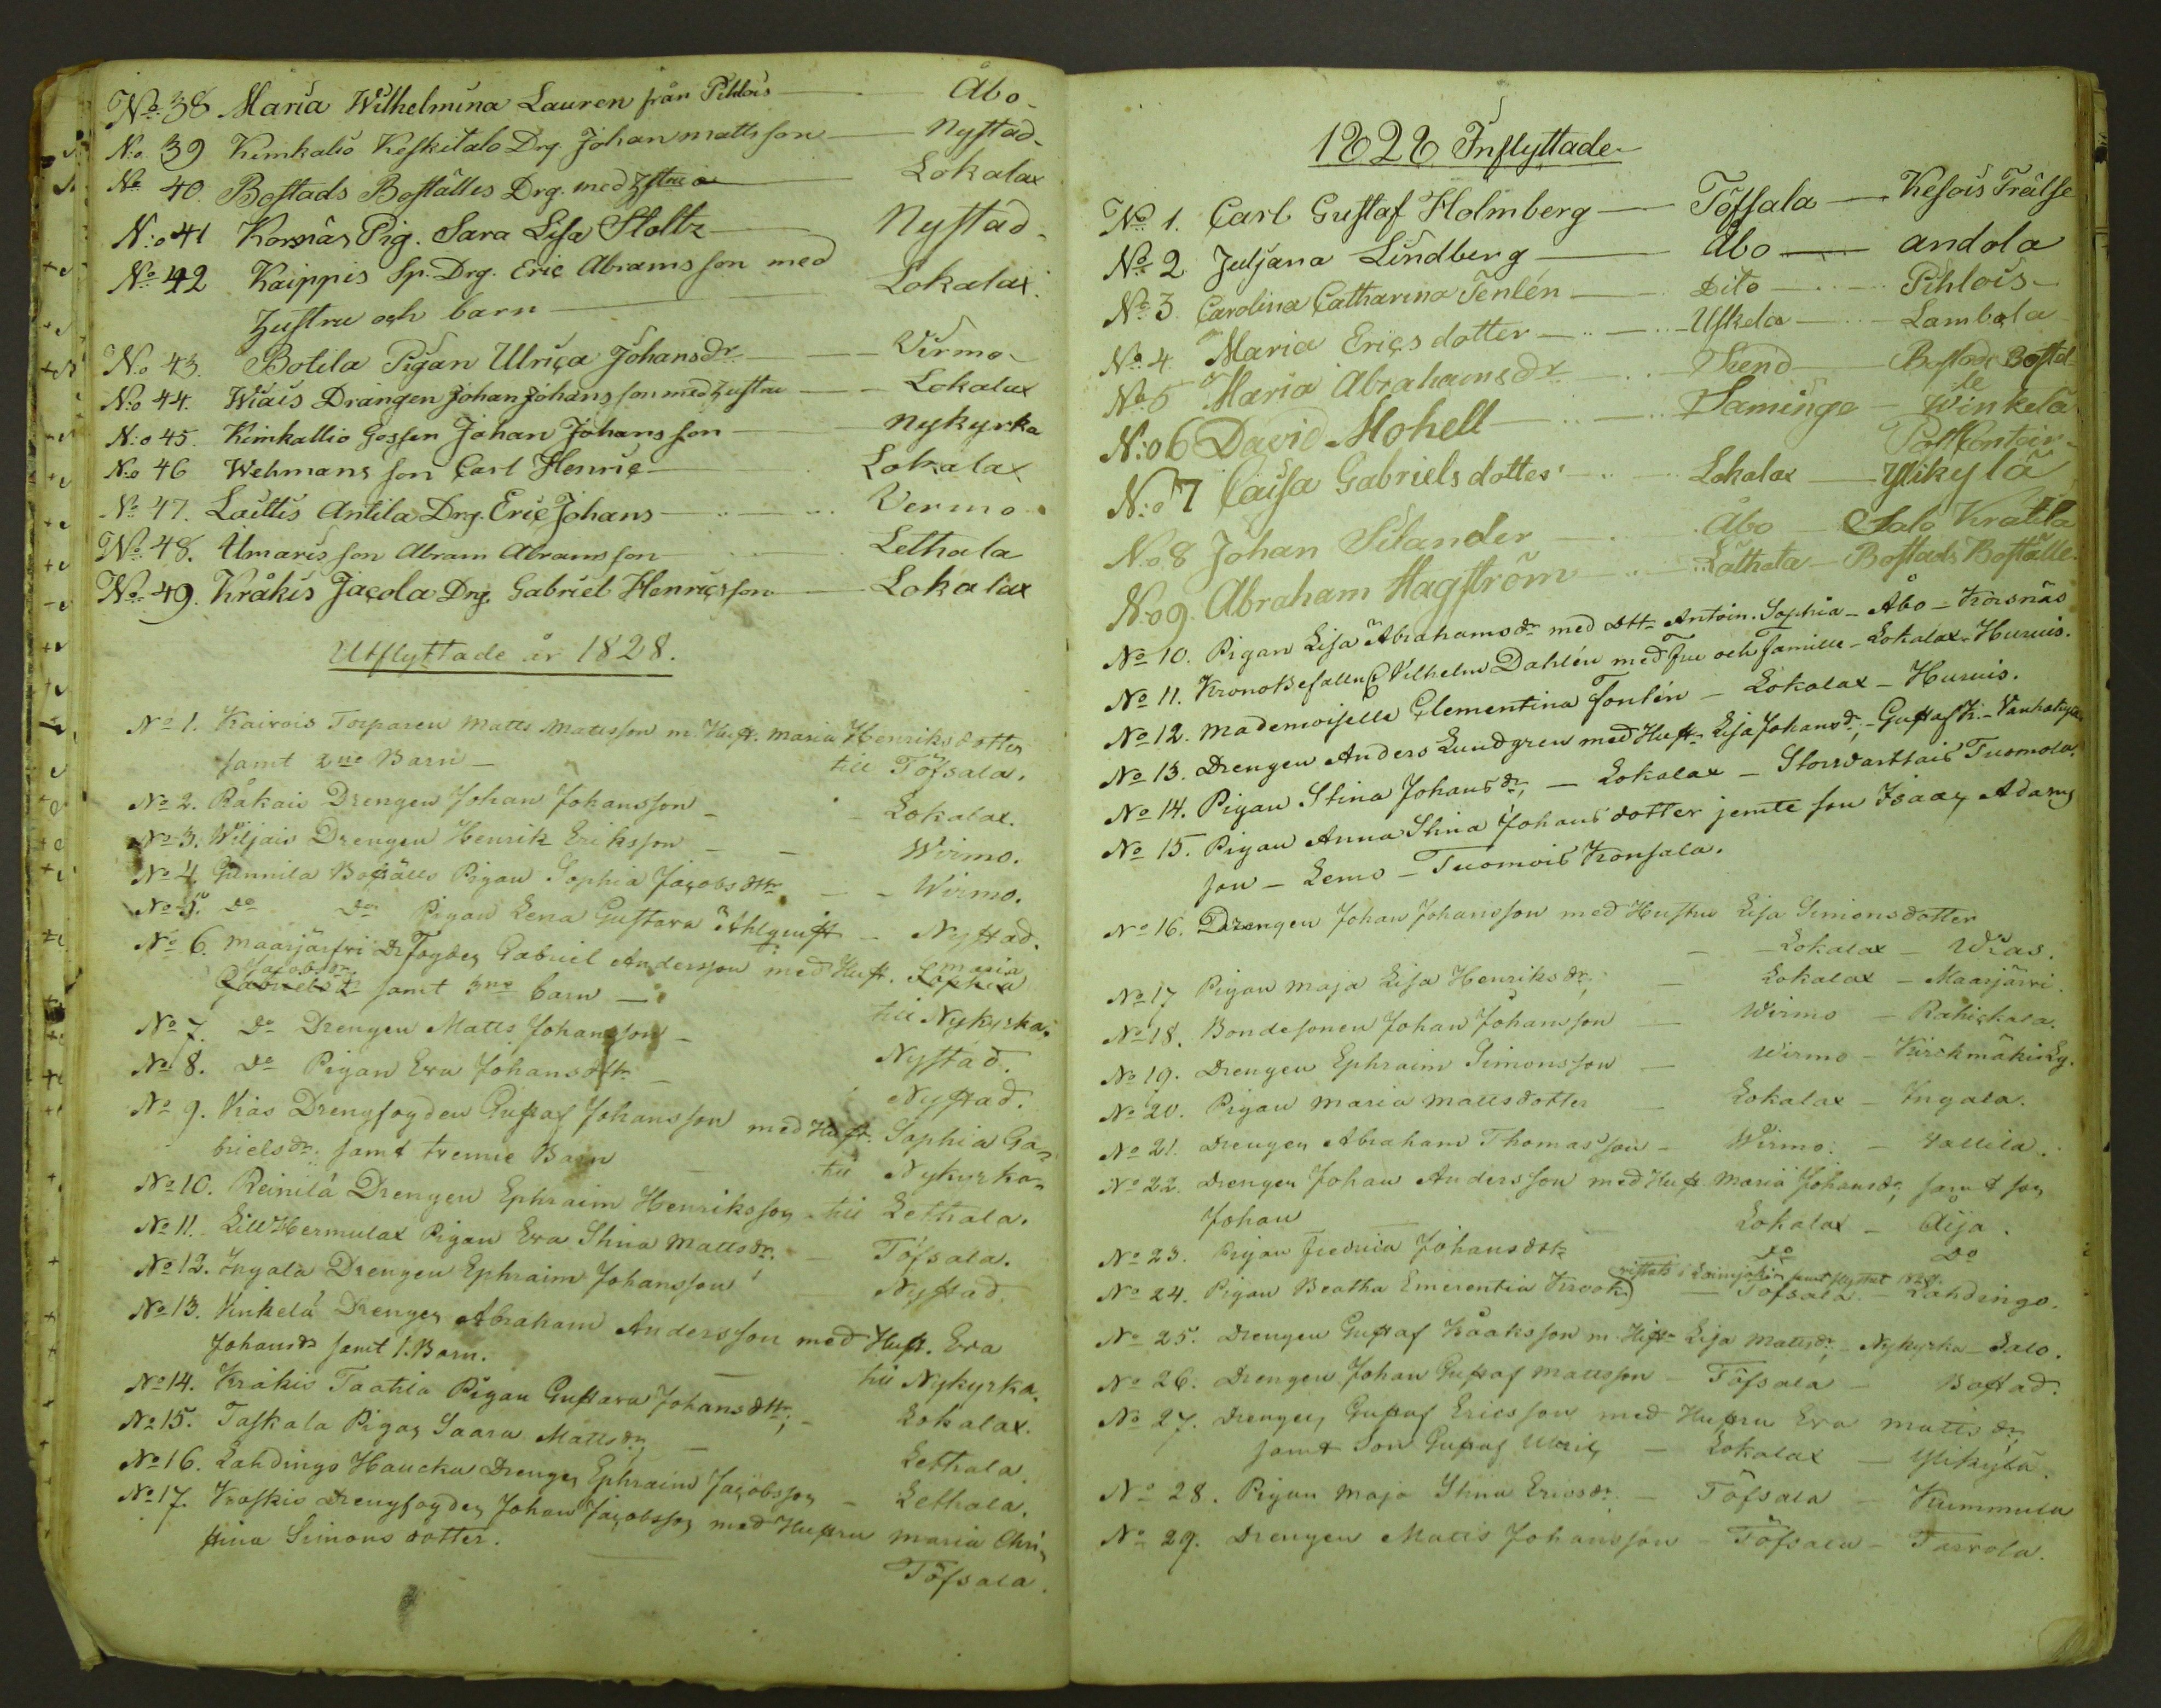 No 38 Maria Wilhelmina Lauren från Pihlois — Åbo
N:o 39 Kimkalio Keskitalo Drg. Johan Mattsson — Nystad
No 40. Bostads Boställes Drg. med Hustru — Lokalax
N:o 41 Korsnäs Pig. Sara Lisa Stoltz — Nystad
No 42 Kaippis Sp. Drg. Eric Abramsson med
Hustru och barn — Lokalax
N:o 43. Botila Pigan Ulrica Johansdr — Virmo
N:o 44. Wiais Drängen Johan Johansson med Hustru — Lokalax
N:o 45. Kimkallio Gossen Johan Johansson — Nykyrka
N:o 46 Wehmans son Carl Henric — Lokalax
No 47. Laittis Antila Drg. Eric Johans — Vermo
No 48. Umaris son Abram Abramsson — Lethala
No 49. Kråkis Jacola Drg. Gabriel Henricsson — Lokalax
Utflyttade år 1828.
No 1. Kairois Torparen Matts Mattsson m. Hust. Maria Henriksdotter
samt 2ne Barn — till Töfsala.
No 2. Råkais Drengen Johan Johansson — Lokalax.
No 3. Wiljais Drengen Henrik Eriksson — Wirmo.
No 4. Gunnila Boställs Pigan Sophia Jacobsdttr — Wirmo.
No 5. do do Pigan Lena Gustava Åhlquist — Nystad.
No 6. Maarjärfvi Dr.fogden Gabriel Andersson med Hust. Sophia Maria
Gabrielsdr Jacobsdr. samt 3ne barn — till Nykyrka.
No 7. do Drengen Matts Johansson — Nystad.
No 8. do Pigan Eva Johansdttr — Nystad.
No 9. Kias Drengfogden Gustaf Johansson med Hust. Sophia Ga-
brielsdr. samt trenne Barn — till Nykyrka
No 10. Reinilä Drengen Ephraim Henriksson till Lethala.
No 11. Lill Hermulax Pigan Eva Stina Mattsdr. — Töfsala.
No 12. Ingala Drengen Ephraim Johansson — Nystad.
No 13. Vinkelä Drengen Abraham Andersson med Hust. Eva
Johansdr samt 1. Barn. — till Nykyrka.
No 14. Kråkis Taatila Pigan Gustava Johansdttr, — Lokalax.
No 15. Taskala Pigan Saara Mattsdr, — Lethala.
No 16. Lahdingo Haucka Drengen Ephraim Jacobsson — Lethala.
No 17. Kraskis Drengfogden Johan Jacobsson med Hustru Maria Chri-
stina Simonsdotter. — Töfsala.
1828 Inflyttade
No 1. Carl Gustaf Holmberg — Töfsala — Kesois Frälse
No 2 Juljana Lindberg — Åbo — andola
No 3. Carolina Catharina Tenlén — Dito — Pihlois
No 4 Maria Ericsdotter — Uskela — Lambala
No 5 Maria Abrahamsdr — — Bostads Bostäl-
le
N:o 6 David Mohell — Saminge — Winkelä
Post Contoir
N:o 7 Caisa Gabrielsdotter — Lokalax — Ylikylä
N:o 8 Johan Silander — Åbo — Salo Kratila
N:o 9. Abraham Hagström — Låthala — Bostads Boställe.
No 10. Pigan Lisa Abrahamsdr med dttr Antoin. Sophia — Åbo — Korsnäs
No 11. KronoBefalln. Vilhelm Dahlén med Fru och Famille — Lokalax — Huruis.
No 12. Mademoiselle Clementina Fonlén — Lokalax — Huruis.
No 13. Drengen Anders Lundgren med Hust. Lisa Johansdr, — Gustaf K. — Vanhakyla
No 14. Pigan Stina Johansdr, — Lokalax — Storvarttais Tuomola.
No 15. Pigan Anna Stina Johansdotter jemte son Isaac Adams
son — Lemo — Tuomois Konsala.
No 16. Drengen Johan Johansson med Hustru Lisa Simonsdotter
— Lokalax — Wias.
No 17 Pigan Maja Lisa Henriksdr, — Lokalax — Maarjärvi.
No 18. Bondesonen Johan Johansson — Wirmo — Rahickala.
No 19. Drengen Ephraim Simonsson — Wirmo — Kirckmäki Lg.
No 20. Pigan Maria Mattsdotter — Lokalax — Ingala.
No 21. Drengen Abraham Thomasson — Wirmo. — Vallila.
No 22. Drengen Johan Andersson med Hust. Maria Johansdr, samt son
Johan — Lokalax — Aija.
No 23. Pigan Fredrica Johansdttr — do do
No 24. Pigan Beatha Emerentia Krook — Töfsala. — Lahdingo.
No 25. Drengen Gustaf Isaaksson m. Hust. Lisa Mattsdr, — Nykyrka — Salo.
No 26. Drengen Johan Gustaf Mattsson — Töfsala — Bostad.
No 27. Drengen Gustaf Ericsson med Hustru Eva Mattsdr,
samt son Gustaf Ulric — Lokalax — Ylikylä.
No 28. Pigan Maja Stina Ericsdr. — Töfsala — Kummula
No 29. Drengen Matts Johansson — Töfsala — Tarvola.